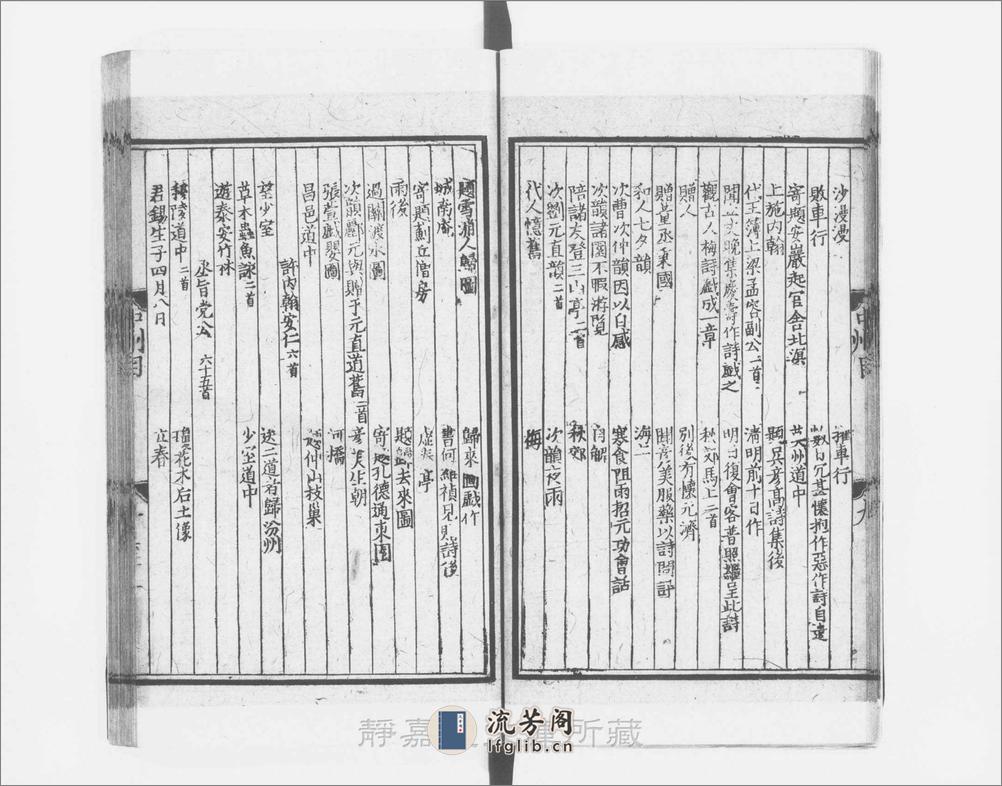 沙漫漫
推車行
敗車行
數日冗甚懷抱作惡作詩自遣
寄題安嚴起官舍北溟
道中
上施內翰
題吳彥高詩集後
代王簿上梁孟容副公二首
清明前十日作
晚集慶壽作詩戲之
明日復會客普照繼呈此詩
觀古人梅詩戲成一章
秋郊馬上二首
贈人
別後有懷元濟
贈董丞秉國
美服藥以詩問訊
和人七夕韻
次曹次仲韻因以自感
寒食阻雨招元功會話
次韻諸園不暇游覽
自解
陪諸友登三山亭二首
秋郊
次劉元直韻二首
次韻夜雨
代人憶舊
題雪浦人歸圖
歸來圖戲作
城南庵
書何維禎見貽詩後
寄題劃立僧房
亭
雨後
題歸去來圖
過關渡水圖
寄題孔德通東園
次韻酈元與贈于元直道舊二首
彥美生朝
張萱戲嬰圖
河橋
昌邑道中
題仲山枝巢
許內翰安仁六首
望少室
送二道者歸汾州
草木蟲魚詠二首
少室道中
遊泰安竹林
丞旨党公 六十五首
穆陵道中二首
瓊花木后土像
君錫生子四月八日
立春
中州目
九
靜嘉 所藏
流芳阁
lfglib.cn